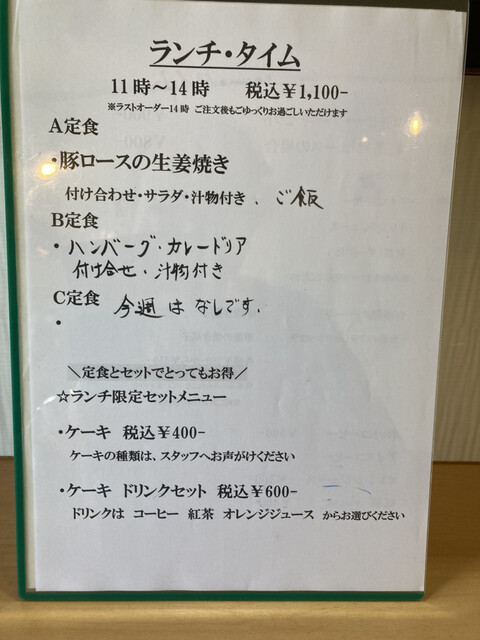 ランチ・タイム
11時～14時 税込￥1,100-
※ラストオーダー14時 ご注文後もごゆっくりお過ごしいただけます
A定食
・豚ロースの生姜焼き
付け合わせ・サラダ・汁物付き、ご飯
B定食
・ハンバーグ・カレードリア
付け合せ・汁物付き
C定食 今週はなしです。
・
＼定食とセットでとってもお得／
☆ランチ限定セットメニュー
・ケーキ 税込￥400-
ケーキの種類は、スタッフへお声がけください
・ケーキ ドリンクセット 税込￥600-
ドリンクは コーヒー 紅茶 オレンジジュース からお選びください